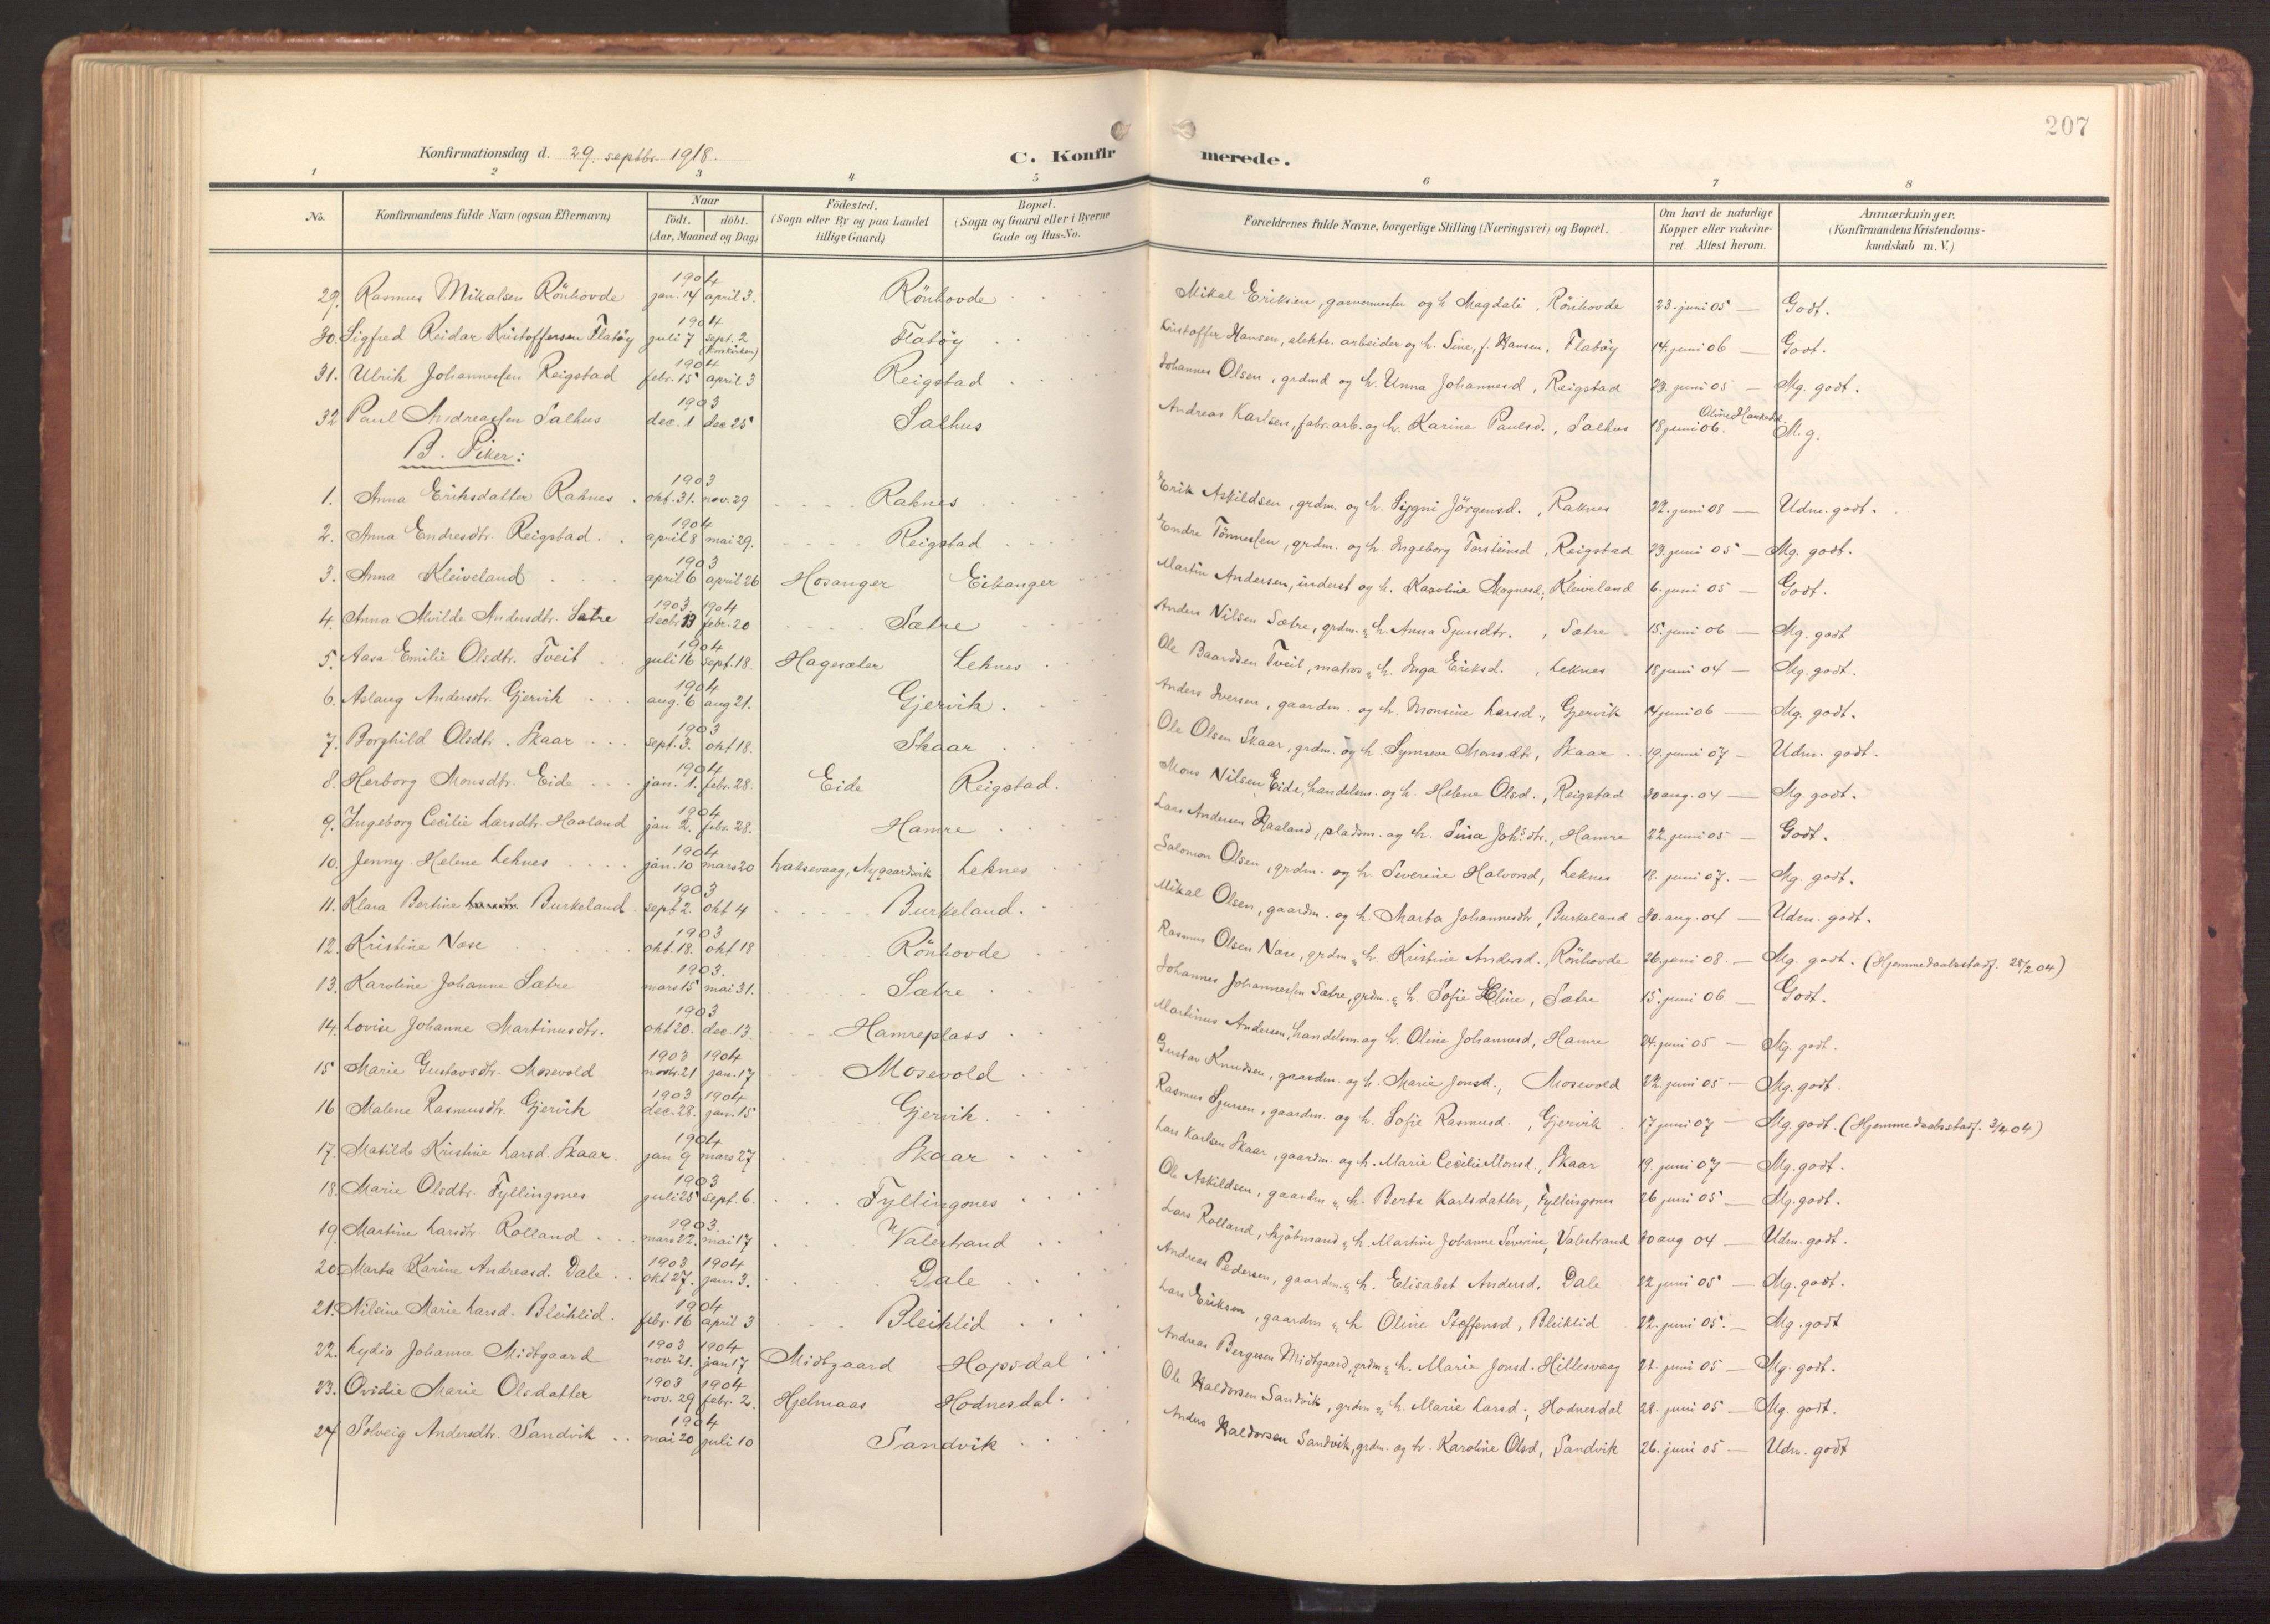 207
Konfirmationsdag d. 29. septbr. 1918.
C. Konfirmerede.
1 2 3 4 5 6 7 8
No. Konfirmandens fulde Navn (ogsaa Efternavn) Naar født. døbt. (Aar, Maaned og Dag) Fødested. (Sogn eller By og paa Landet tillige Gaard) Bopæl. (Sogn og Gaard eller i Byerne Gade og Hus-No. Forældrenes fulde Navne, borgerlige Stilling (Næringsvei) og Bopæl. Om havt de naturlige Kopper eller vakcineret. Attest herom. Anmærkninger. (Konfirmandens Kristendomskundskab m. V.)
29. Rasmus Mikalsen Rönhovde 1904 jan. 14 april 3. Rönhovde Mikal Eriksen, garvermester og h. Magdali, Rönhovde 23. juni 05 — Godt.
30. Sigfred Reidar Kristoffersen Flatöy 1904 juli 7 sept. 2 (Korskirken) Flatöy Kristoffer Hansen, elektr. arbeider og h. Sine, f. Hansen, Flatöy 14. juni 06 — Godt.
31. Ulrik Johannessen Reigstad 1904 febr. 15 april 3 Reigstad Johannes Olsen, grdmd og h. Unna Johannesd, Reigstad 23. juni 05 — Mg. godt.
32 Paul Andreassen Salhus 1903 dec. 1 dec 25 Salhus Andreas Karlsen, fabr. arb. og h. Karine Paulsd., Salhus 18 juni 06. M.g.
B. Piker:
1. Anna Eriksdatter Raknes 1903 okt. 31. nov. 29 Raknes Erik Askildsen, grdm. og h. Siggni Jörgensd., Raknes 22. juni 08 — Udm. godt.
2. Anna Endresdtr. Reigstad 1904 april 8 mai 29. Reigstad Endre Tönnessen, grdm. og h. Ingeborg Torsteinsd, Reigstad 23. juni 05 — Mg. godt.
3. Anna Kleiveland 1903 april 6 april 26 Hosanger Eikanger Martin Andersen, inderst og h. Karoline Magnesd, Kleiveland 6. juni 05 — Godt.
4. Anna Alvilde Andersdtr. Sætre 1903 1904 decbr. 13 febr. 20 Sætre Anders Nilsen Sætre, grdm. „ h. Anna Sjursdtr., Sætre 15. juni 06 — Mg. godt
5. Aasa Emilie Olsdtr. Tveit 1904 juli 16 sept. 18. Hagesæter Leknes Ole Baardsen Tveit, matros „ h. Inga Eriksd., Leknes 18 juni 04 — Mg. godt.
6. Aslaug Andersdtr. Gjervik 1904 aug. 6 aug 21. Gjervik. Anders Iversen, gaardm. og h. Monsine Larsd., Gjervik 14 juni 06 — Mg. godt.
7. Borghild Olsdtr. Skaar 1903 sept. 3. okt 18. Skaar Ole Olsen Skaar, grdm. og h. Synneve Monsdtr, Skaar 19. juni 07 — Udm. godt.
8. Herborg Monsdtr. Eide 1904 jan. 1. febr. 28. Eide Reigstad. Mons Nilsen Eide, handelsm. og h. Helene Olsd., Reigstad 30 aug. 04 — Mg. godt.
9. Ingeborg Cecilie Larsdtr. Haaland 1904 jan 2. febr. 28. Hamre Lars Andersen Haaland, pladsm. og h. Sina Johs.dtr., Hamre 22. juni 05 — Godt.
10. Jenny Helene Leknes 1904 jan. 10 mars 20 Laksevaag, Nygaardsvik Leknes Salomon Olsen, grdm. og h. Severine Halvorsd, Leknes 18. juni 07. — Mg. godt.
11. Klara Bertine Burkeland 1903 sept 2. okt 4 Burkeland. Mikal Olsen, gaardm. og h. Marta Johannesdtr, Burkeland 30. aug. 04 — Udm. godt.
12. Kristine Nose 1903 okt. 18. okt 18 Rönhovde Rasmus Olsen Nose, grdm „ h. Kristine Andersd., Rönhovde 26. juni 08. — Mg. godt. (Hjemmedaabstadf. 28/2 04)
13. Karoline Johanne Sætre 1903. mars 15 mai 31. Sætre Johannes Johannessen Sætre, grdm. „ h. Sofie Eline, Sætre 15. juni 06 — Godt.
14. Lovise Johanne Martinusdtr. 1903 okt 20. dec. 13. Hamreplass Martinus Andersen, handelsm. og h. Oline Johannesd, Hamre 24. juni 05 — Mg. godt.
15 Marie Gustavsdtr. Mosevold 1903 1904 novbr 21 jan. 17 Mosevold Gustav Knudsen, gaardm. og h. Marie Jonsd., Mosevold 22. juni 05 — Mg. godt.
16 Malene Rasmusdtr. Gjervik 1903 1904 dec. 28. jan. 15 Gjervik. Rasmus Sjursen, gaardm. og h. Sofie Rasmusd., Gjervik 17 juni 07 — Mg. godt. (Hjemmedaabstadf. 3/4 04)
17. Matilde Kristine Larsd. Skaar. 1904 jan 9 mars 27 Skaar Lars Karlsen Skaar, gaardm. og h. Marie Cecilie Monsd., Skaar 19. juni 07 — Mg. godt.
18. Marie Olsdtr. Fyllingsnes 1903 juli 25 sept. 6. Fyllingsnes Ole Askildsen, gaardm „ h. Berta Karlsdatter, Fyllingsnes 26 juni 05 — Mg. godt.
19. Martine Larsdtr. Rolland 1903. mars 22. mai 17 Valestrand Lars Rolland, kjöbmand „ h. Martine Johanne Severine, Valestrand 30 aug 04 — Udm. godt.
20. Marta Karine Andreasd. Dale 1903 1904 okt 27. jan. 3. Dale Andreas Pedersen, gaardm. „ h. Elisabet Andersd. Dale 22 juni 05 — Mg. godt.
21. Nilsine Marie Larsd. Bleiklid. 1904 febr. 16 april 3 Bleiklid Lars Eriksen, gaardm „ h Oline Steffensd, Bleiklid 22. juni 05. — Mg. godt
22. Lydia Johanne Midtgaard 1903 1904 nov. 21. jan 17 Midtgaard Hopsdal Andreas Bergesen Midtgaard, grdm „ h. Marie Jonsd. Hillesvaag 22. juni 05 — Mg. godt.
23. Ovidie Marie Olsdatter 1903 1904 nov. 29 febr. 2. Hjelmaas Hodnesdal. Ole Haldorsen Sandvik, grdm „ h. Marie Larsd., Hodnesdal 28. juni 05 — Mg. godt.
24 Solveig Andersdtr. Sandvik 1904 mai 20 juli 10 Sandvik Anders Haldorsen Sandvik, grdm. og h. Karoline Olsd, Sandvik 26. juni 05 — Udm. godt